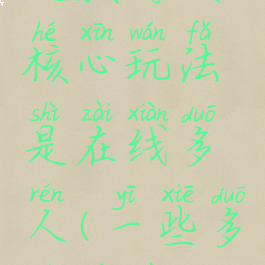 hé xīn wán fǎ
核心玩法
shì zài xiàn duō
是在线多
rén yī xiē duō
人(一些多